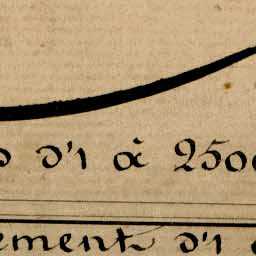 d'1 à 250
ement d'1